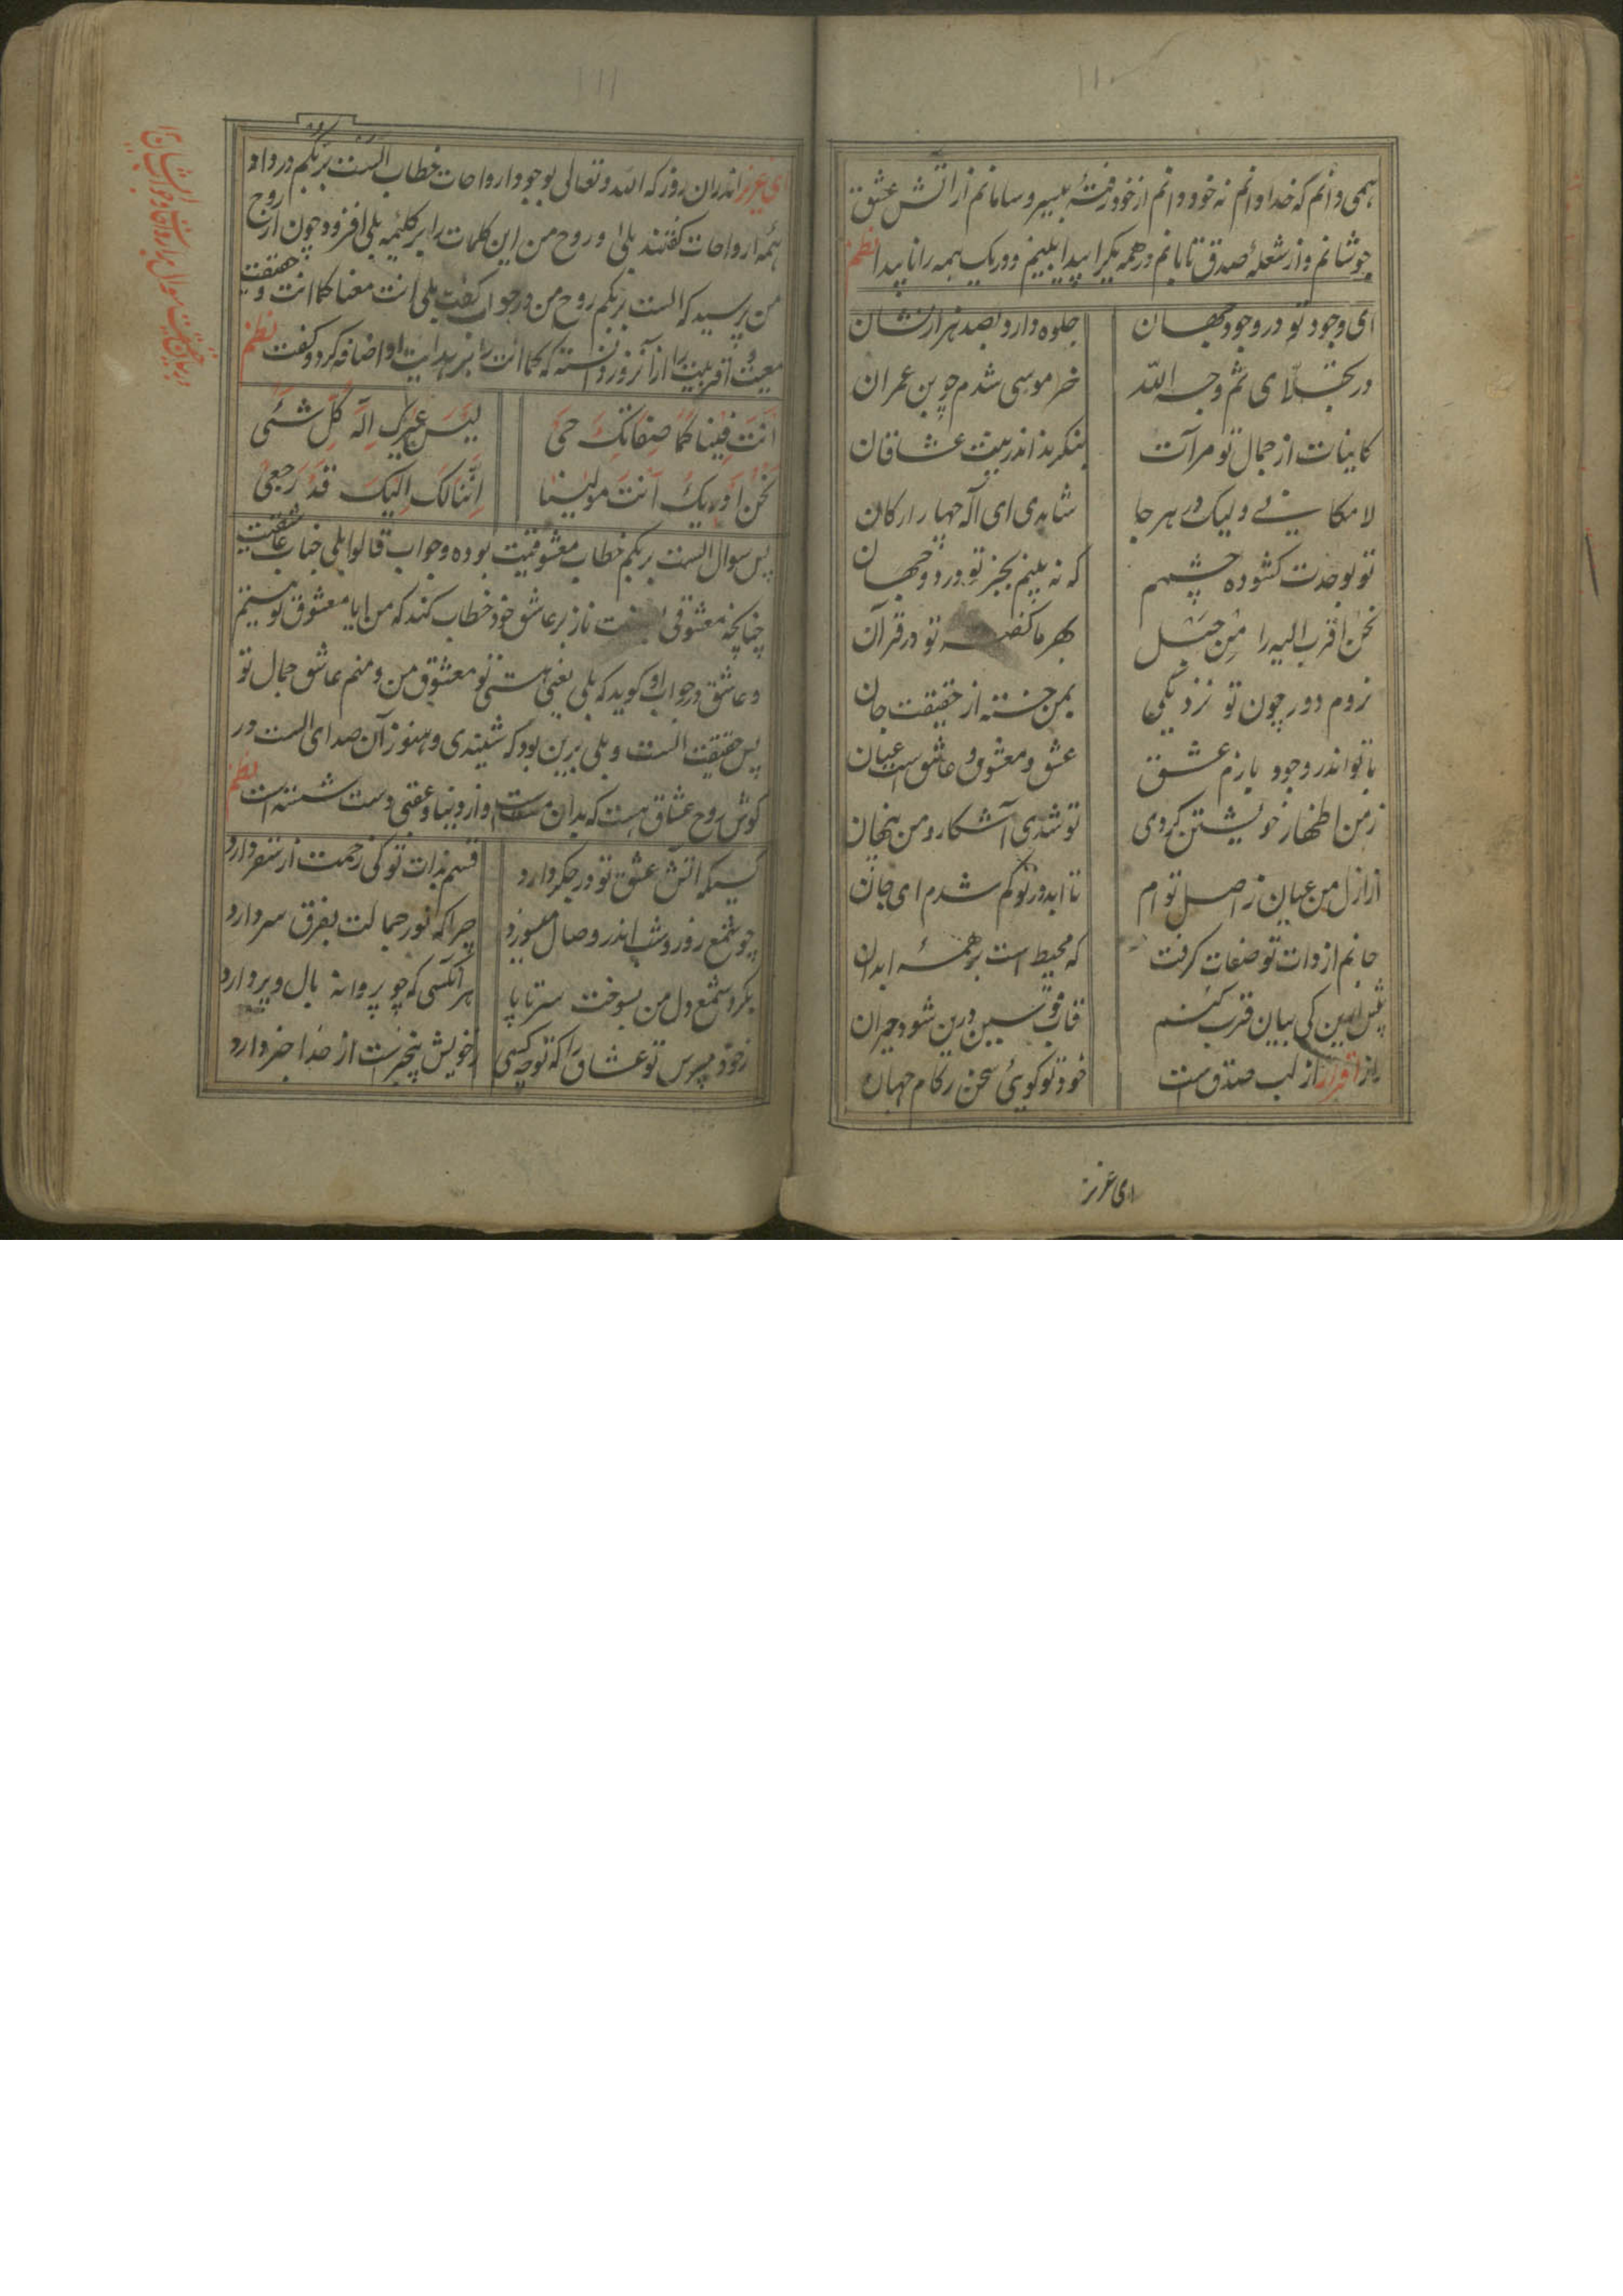 همی دانم که خدا دانم نه خود دانم از خود رفتهٔ بیسر و سامانم از آتش عشق
جوشانم و از شعلهٔ صدق تابانم در همه یکرا پیدا بینم و در یک همه را ناپیدا نظم
ای وجود تو در وجود جهان جلوه دارد بصد هزار نشان
در تجلّای ثم وجه الله خر موسی شدم چو بن عمران
کاینات از جمال تو مرآت بنکرند اندرینت عشاقان
لا مکانی ولیک در هر جا شاهدی ای آله چهار ارکان
تو بوحدت کشوده چشمم که نه بینم بجز تو در دو جهان
نحن اقرب الیه را من حبل بهر ما کفته تو در قرآن
نروم دور چون تو نزدیکی بمن خسته از حقیقت جان
با تو اندر وجود بازم عشق عشق و معشوق و عاشق است عیان
ز من اظهار خویشتن کردی تو شدی آشکار و من پنهان
از ازل من عیان ز اصل تو ام تا ابد در تو کم شدم ای جان
جانم از ذات تو صفات کرفت که محیط است بر همهٔ ابدان
پیش ازین کی بیان قرب کنم قاب قوسین درین شود حیران
راز اقرار از لب صدق است خود تو کوئی سخن ز کام جهان
ای عزیز
ای عزیز اندران روز که الله و تعالی بوجود ارواحات خطاب الست بربکم در داد
همه ارواحات کفتند بلی و روح من این کلمات را بر کلیمه بلی افزود چون از روح
من پرسید که الست بربکم روح من در جواب کفت بلی انت معنا کما انت و حقیقت
معیت و اقربیت را از آنروز دانسته که کما انت را بر بدایت او اضافه کرد و کفت نظم
اَنتَ فینا کما صِفاتکَ حیّ لیسَ غیرکَ اله کل شئی
نحن اَوریک انت مولینا اننا لک الیک قد رجعی
پس سوال الست بربکم خطاب معشوقیت بوده و جواب قالوا بلی جناب عاشقیت
چنانچه معشوقی ناز بر عاشق خود خطاب کند که من ایا معشوق تو هستم
و عاشق در جواب او کوید که بلی یعنی هستی تو معشوق من و منم عاشق جمال تو
پس حقیقت الست و بلی برین بود که شنیدی و هنوز آن صدای الست در
کوش روح عشاق هست که بدان مست و از دنیا و عقبی دست شسته است نظم
کسیکه آتش عشق تو در جکر دارد قسم بذات تو کی زحمت از سقر دارد
چو شمع روز و شب اندر وصال میسوزد چرا که نور جمالت بفرق سر دارد
بکرد شمع دل من بسوخت سر تا پا هر آنکسی که چو پروانه بال و پر دارد
ز خود مپرس تو عشاق را که تو چه کسی ز خویش بیخبرست از خدا خبر دارد